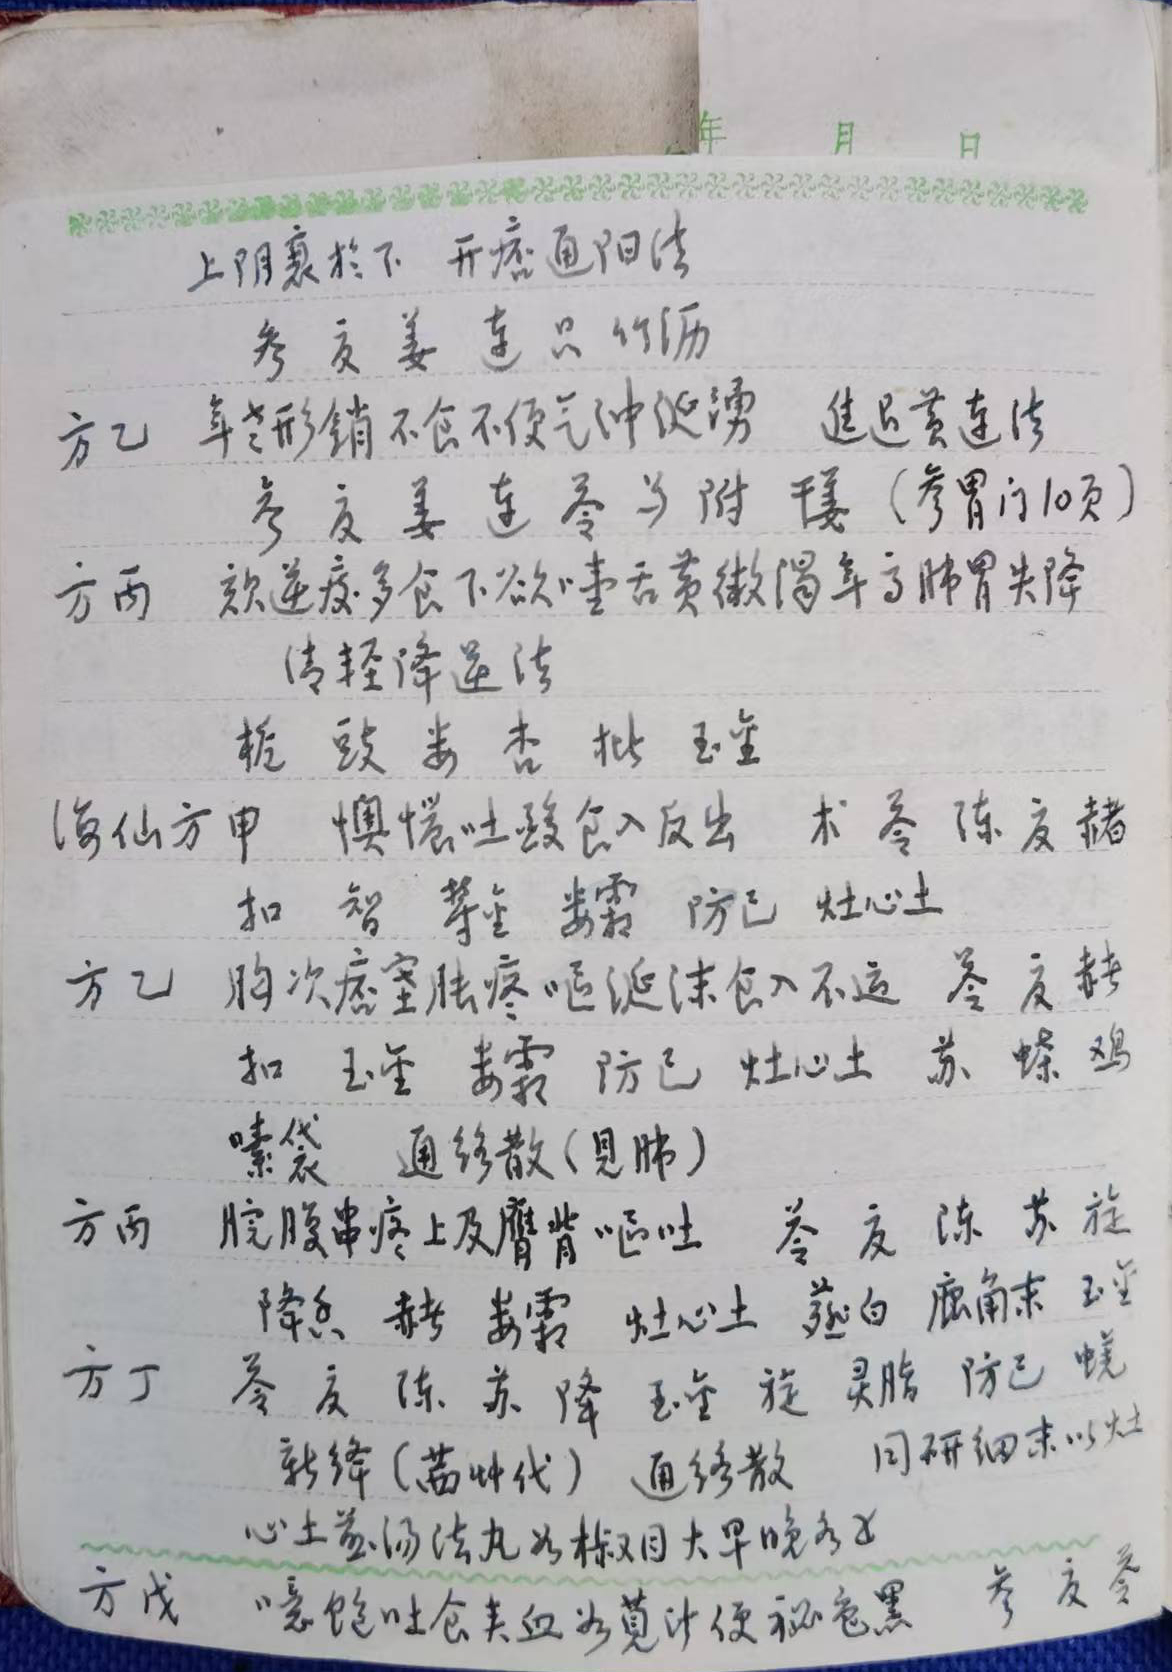 年 月 日
上阴衰於下 开痞通阳法
参 夏 姜 连 只 竹沥
方乙 年老形銷不食不便气冲涎湧 進退黄连法
参 夏 姜 连 苓 芍 附 干姜 (参胃门10页)
方丙 欬逆痰多食下欲噎舌黄微渴年高肺胃失降
清轻降逆法
栀 豉 蒌 杏 枇 玉金
海仙方甲 懊憹吐酸食入反出 术 苓 陈 夏 赭
扣 智 欝金 蒌霜 防己 灶心土
方乙 胸次痞塞胀疼呕涎沫食入不运 苓 夏 赭
扣 玉金 蒌霜 防己 灶心土 苏 蜣 鸡
嗉袋 通络散(見肺)
方丙 脘腹串疼上及膺背呕吐 苓 夏 陈 苏 旋
降香 赭 蒌霜 灶心土 薤白 鹿角末 玉金
方丁 苓 夏 陈 苏 降 玉金 旋 灵脂 防己 蜣
新绛(茜艸代) 通络散 同研细末以灶
心土煎汤法丸如椒目大早晚各
方戊 噫饱吐食夹血如莧汁便祕色黑 参 夏 苓